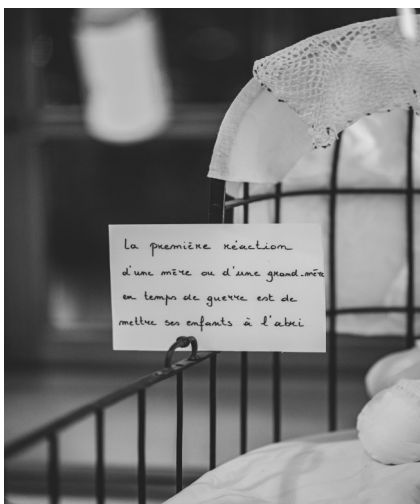 La première réaction
d'une mère ou d'une grand-mère
en temps de guerre est de
mettre ses enfants à l'abri